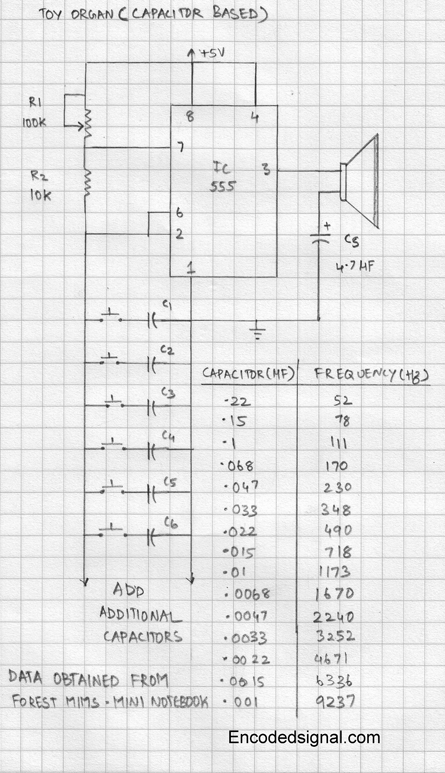 TOY ORGAN (CAPACITOR BASED)
+5V
R1
100K
8
4
7
IC
555
3
R2
10K
6
2
+
C8
4.7µF
1
C1
C2
C3
C4
C5
C6
CAPACITOR(µF) FREQUENCY(HZ)
.22 52
.15 78
.1 111
.068 170
.047 230
.033 348
.022 490
.015 718
.01 1173
.0068 1670
.0047 2240
.0033 3252
.0022 4671
.0015 6336
.001 9237
ADD
ADDITIONAL
CAPACITORS
DATA OBTAINED FROM
FOREST MIMS . MINI NOTEBOOK
Encodedsignal.com